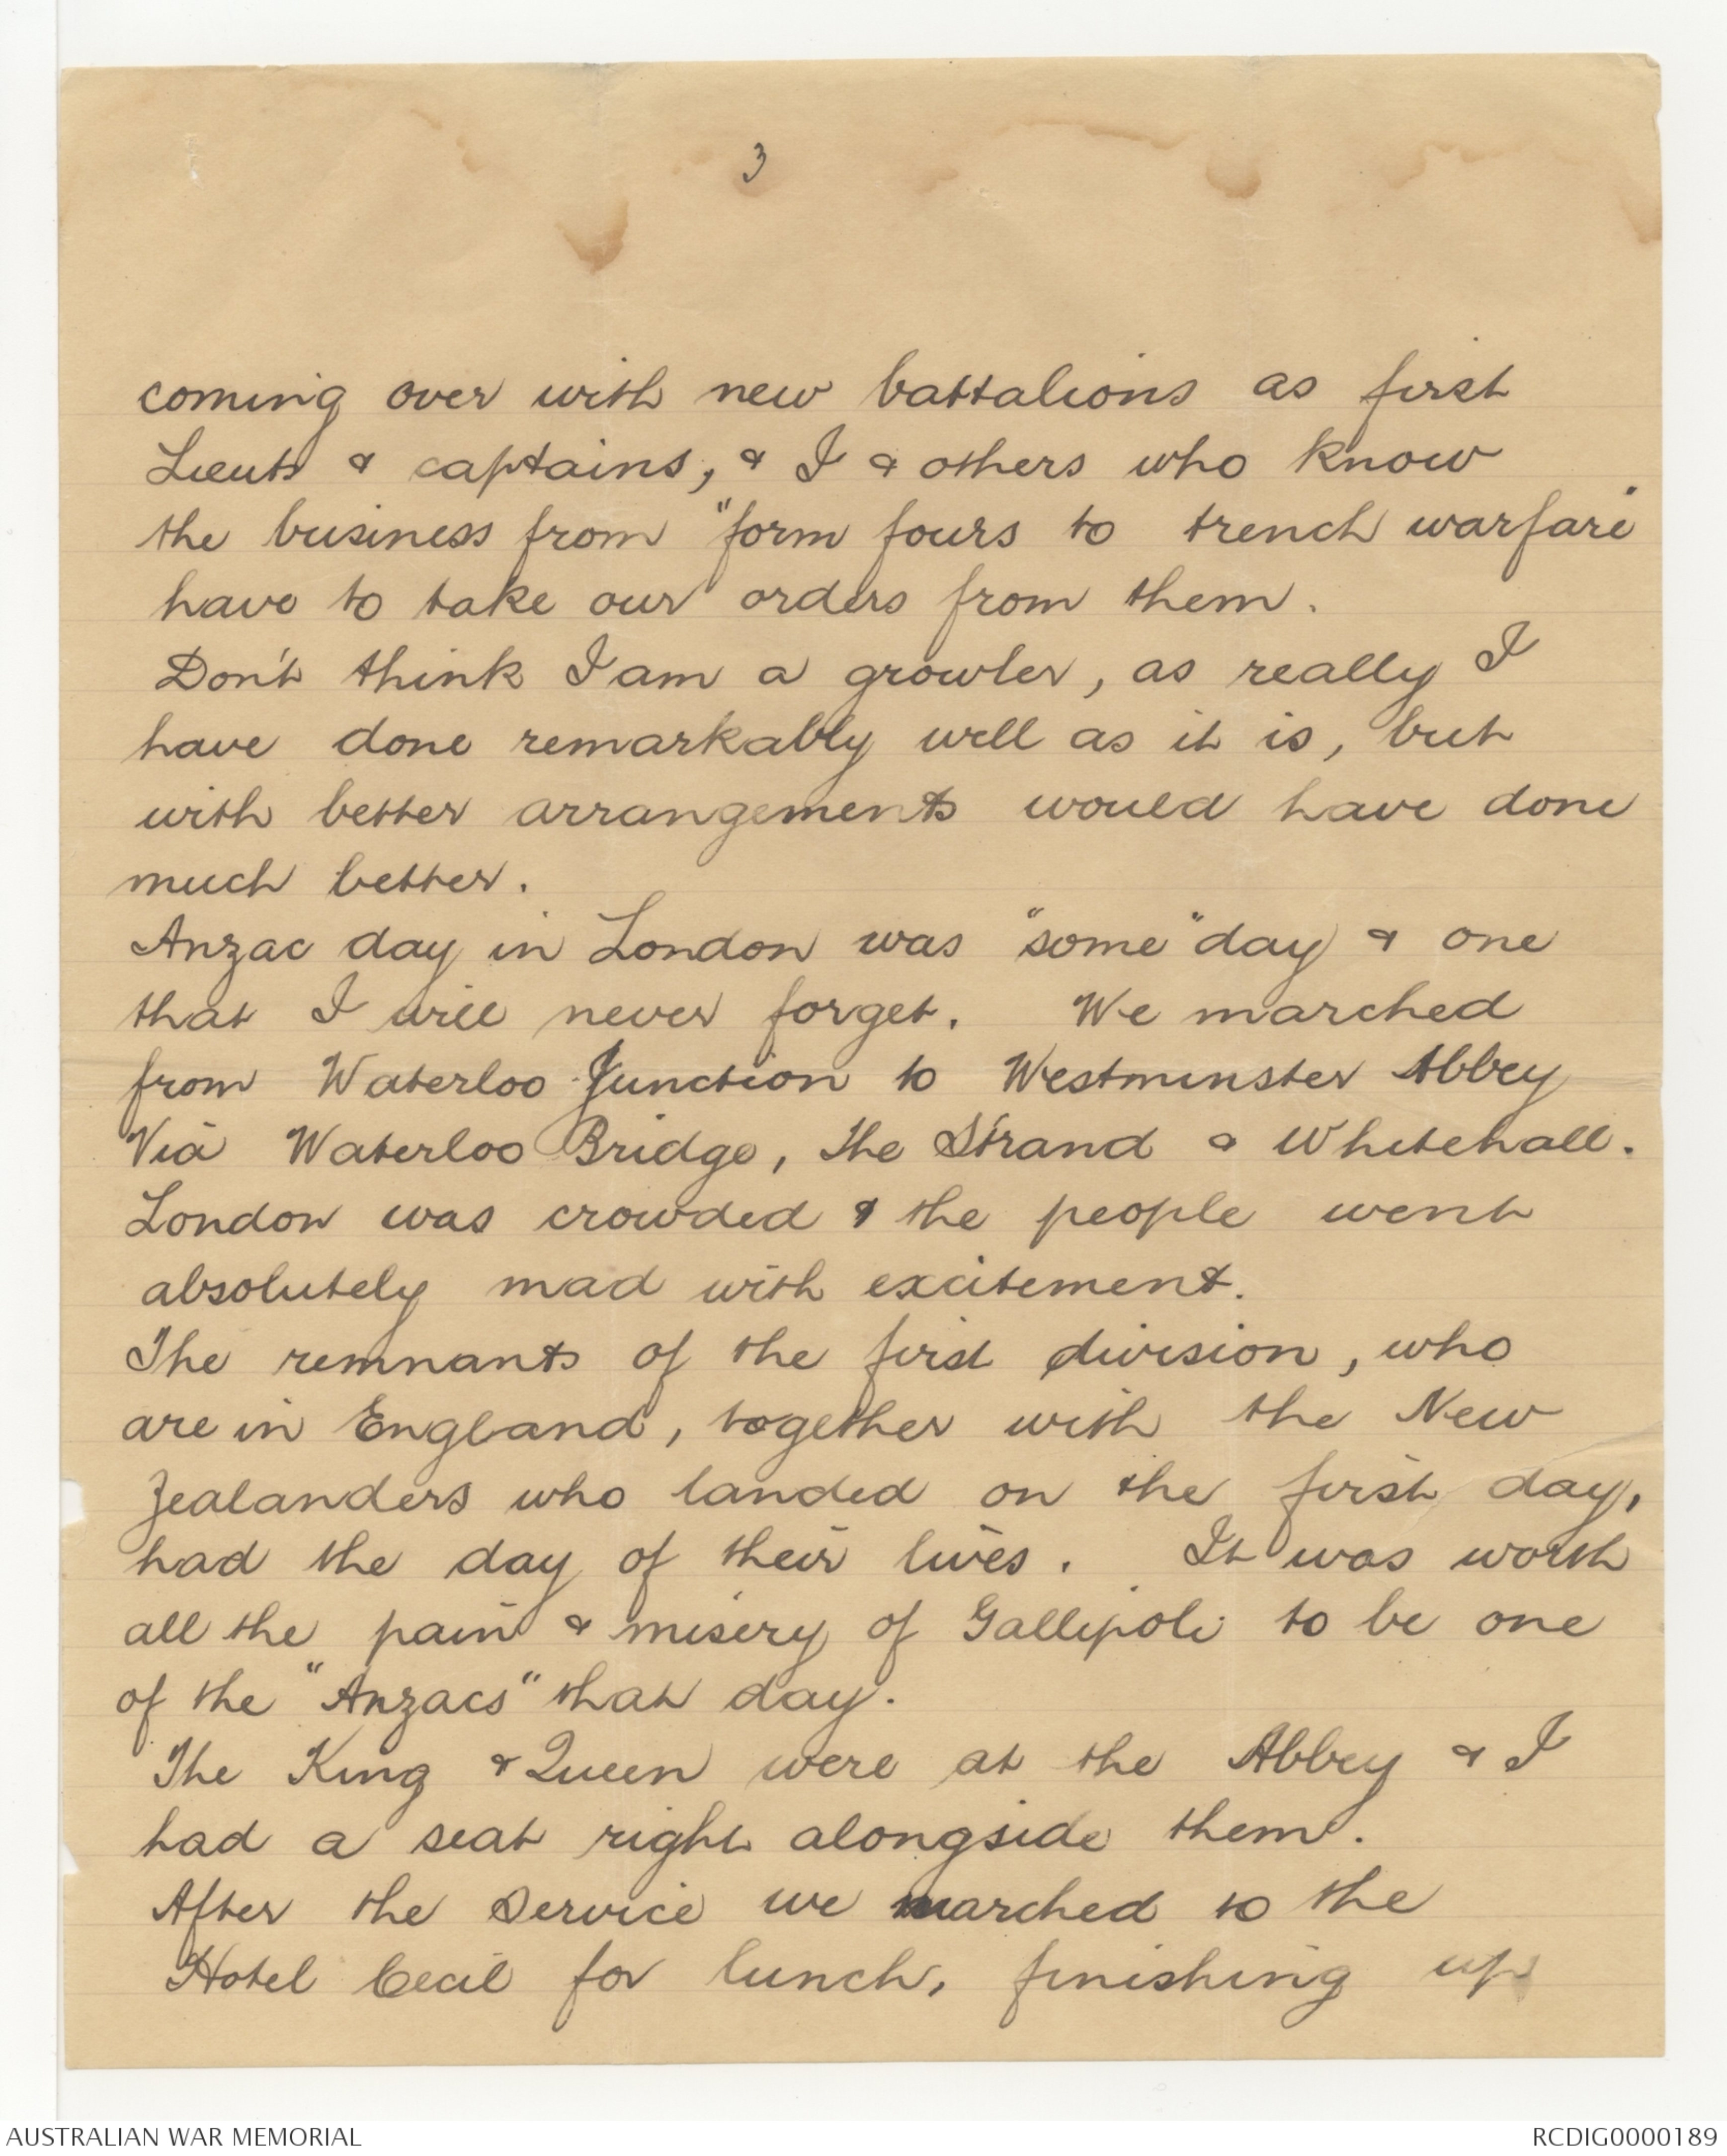 3
coming over with new battalions as first
Lieuts & captains, & I & others who know
the business from "form fours to trench warfare"
have to take our orders from them.
Don't think I am a growler, as really I
have done remarkably well as it is, but
with better arrangements would have done
much better.
Anzac day in London was "some" day & one
that I will never forget. We marched
from Waterloo Junction to Westminster Abbey
Via Waterloo Bridge, the Strand & Whitehall.
London was crowded & the people went
absolutely mad with excitement.
The remnants of the first division, who
are in England, together with the New
Zealanders who landed on the first day,
had the day of their lives. It was worth
all the pain & misery of Gallipoli to be one
of the "Anzacs" that day.
The King & Queen were at the Abbey & I
had a seat right alongside them.
After the service we marched to the
Hotel Cecil for lunch, finishing up
AUSTRALIAN WAR MEMORIAL
RCDIG0000189